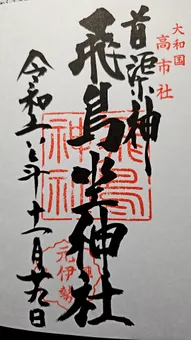 大和国
高市社
首渠神
飛鳥坐神社
飛鳥
神社
元伊勢
令和 年十一月 日